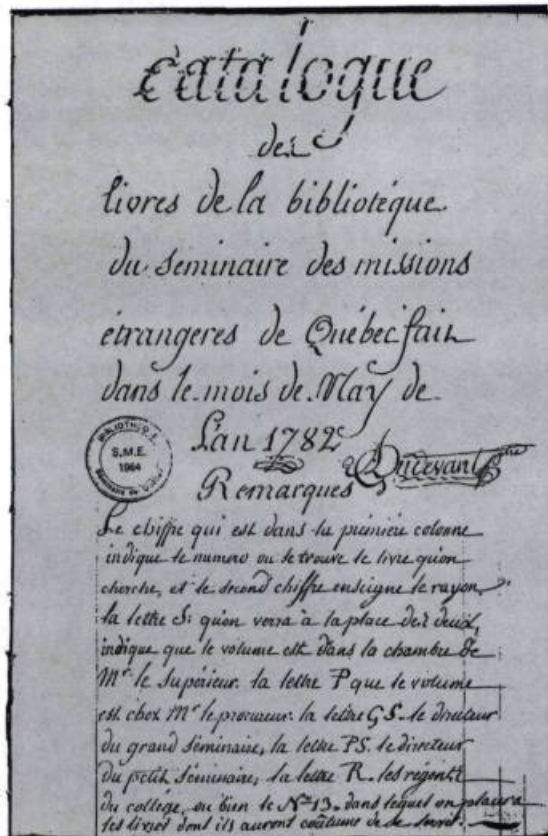 Catalogue
des
livres de la bibliotéque
du seminaire des missions
étrangeres de Québec fait
dans le mois de May de
L'an 1782
BIBLIOTHÈQUE
S.M.E.
1964
Séminaire de Québec
Remarques
Le chiffre qui est dans la première colonne
indique le numero ou se trouve le livre qu'on
cherche, et le second chiffre enseigne le rayon,
la lettre S: qu'on verra à la place des deux,
indique que le volume est dans la chambre de
Mr le Supérieur. la lettre P que le volume
est chez Mr le procureur. la lettre GS. le directeur
du grand séminaire, la lettre PS. le directeur
du petit séminaire, la lettre R. les régents
du collège, ou bien le No 13. dans lequel on placera
les livres dont ils auront coûtume de se servir.